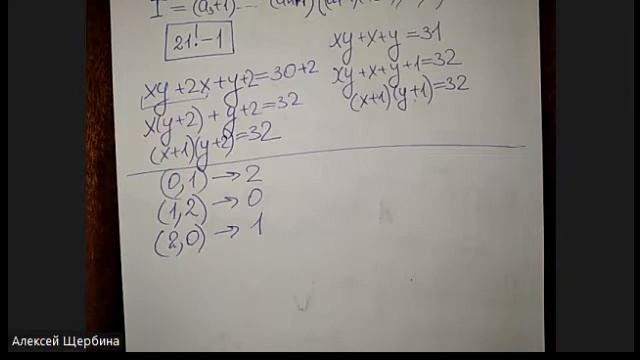 I = (a₃+1)
21! - 1
xy+2x+y+2=30+2
x(y+2)+y+2=32
(x+1)(y+2)=32
xy+x+y=31
xy+x+y+1=32
(x+1)(y+1)=32
(0,1) → 2
(1,2) → 0
(2,0) → 1
Алексей Щербина